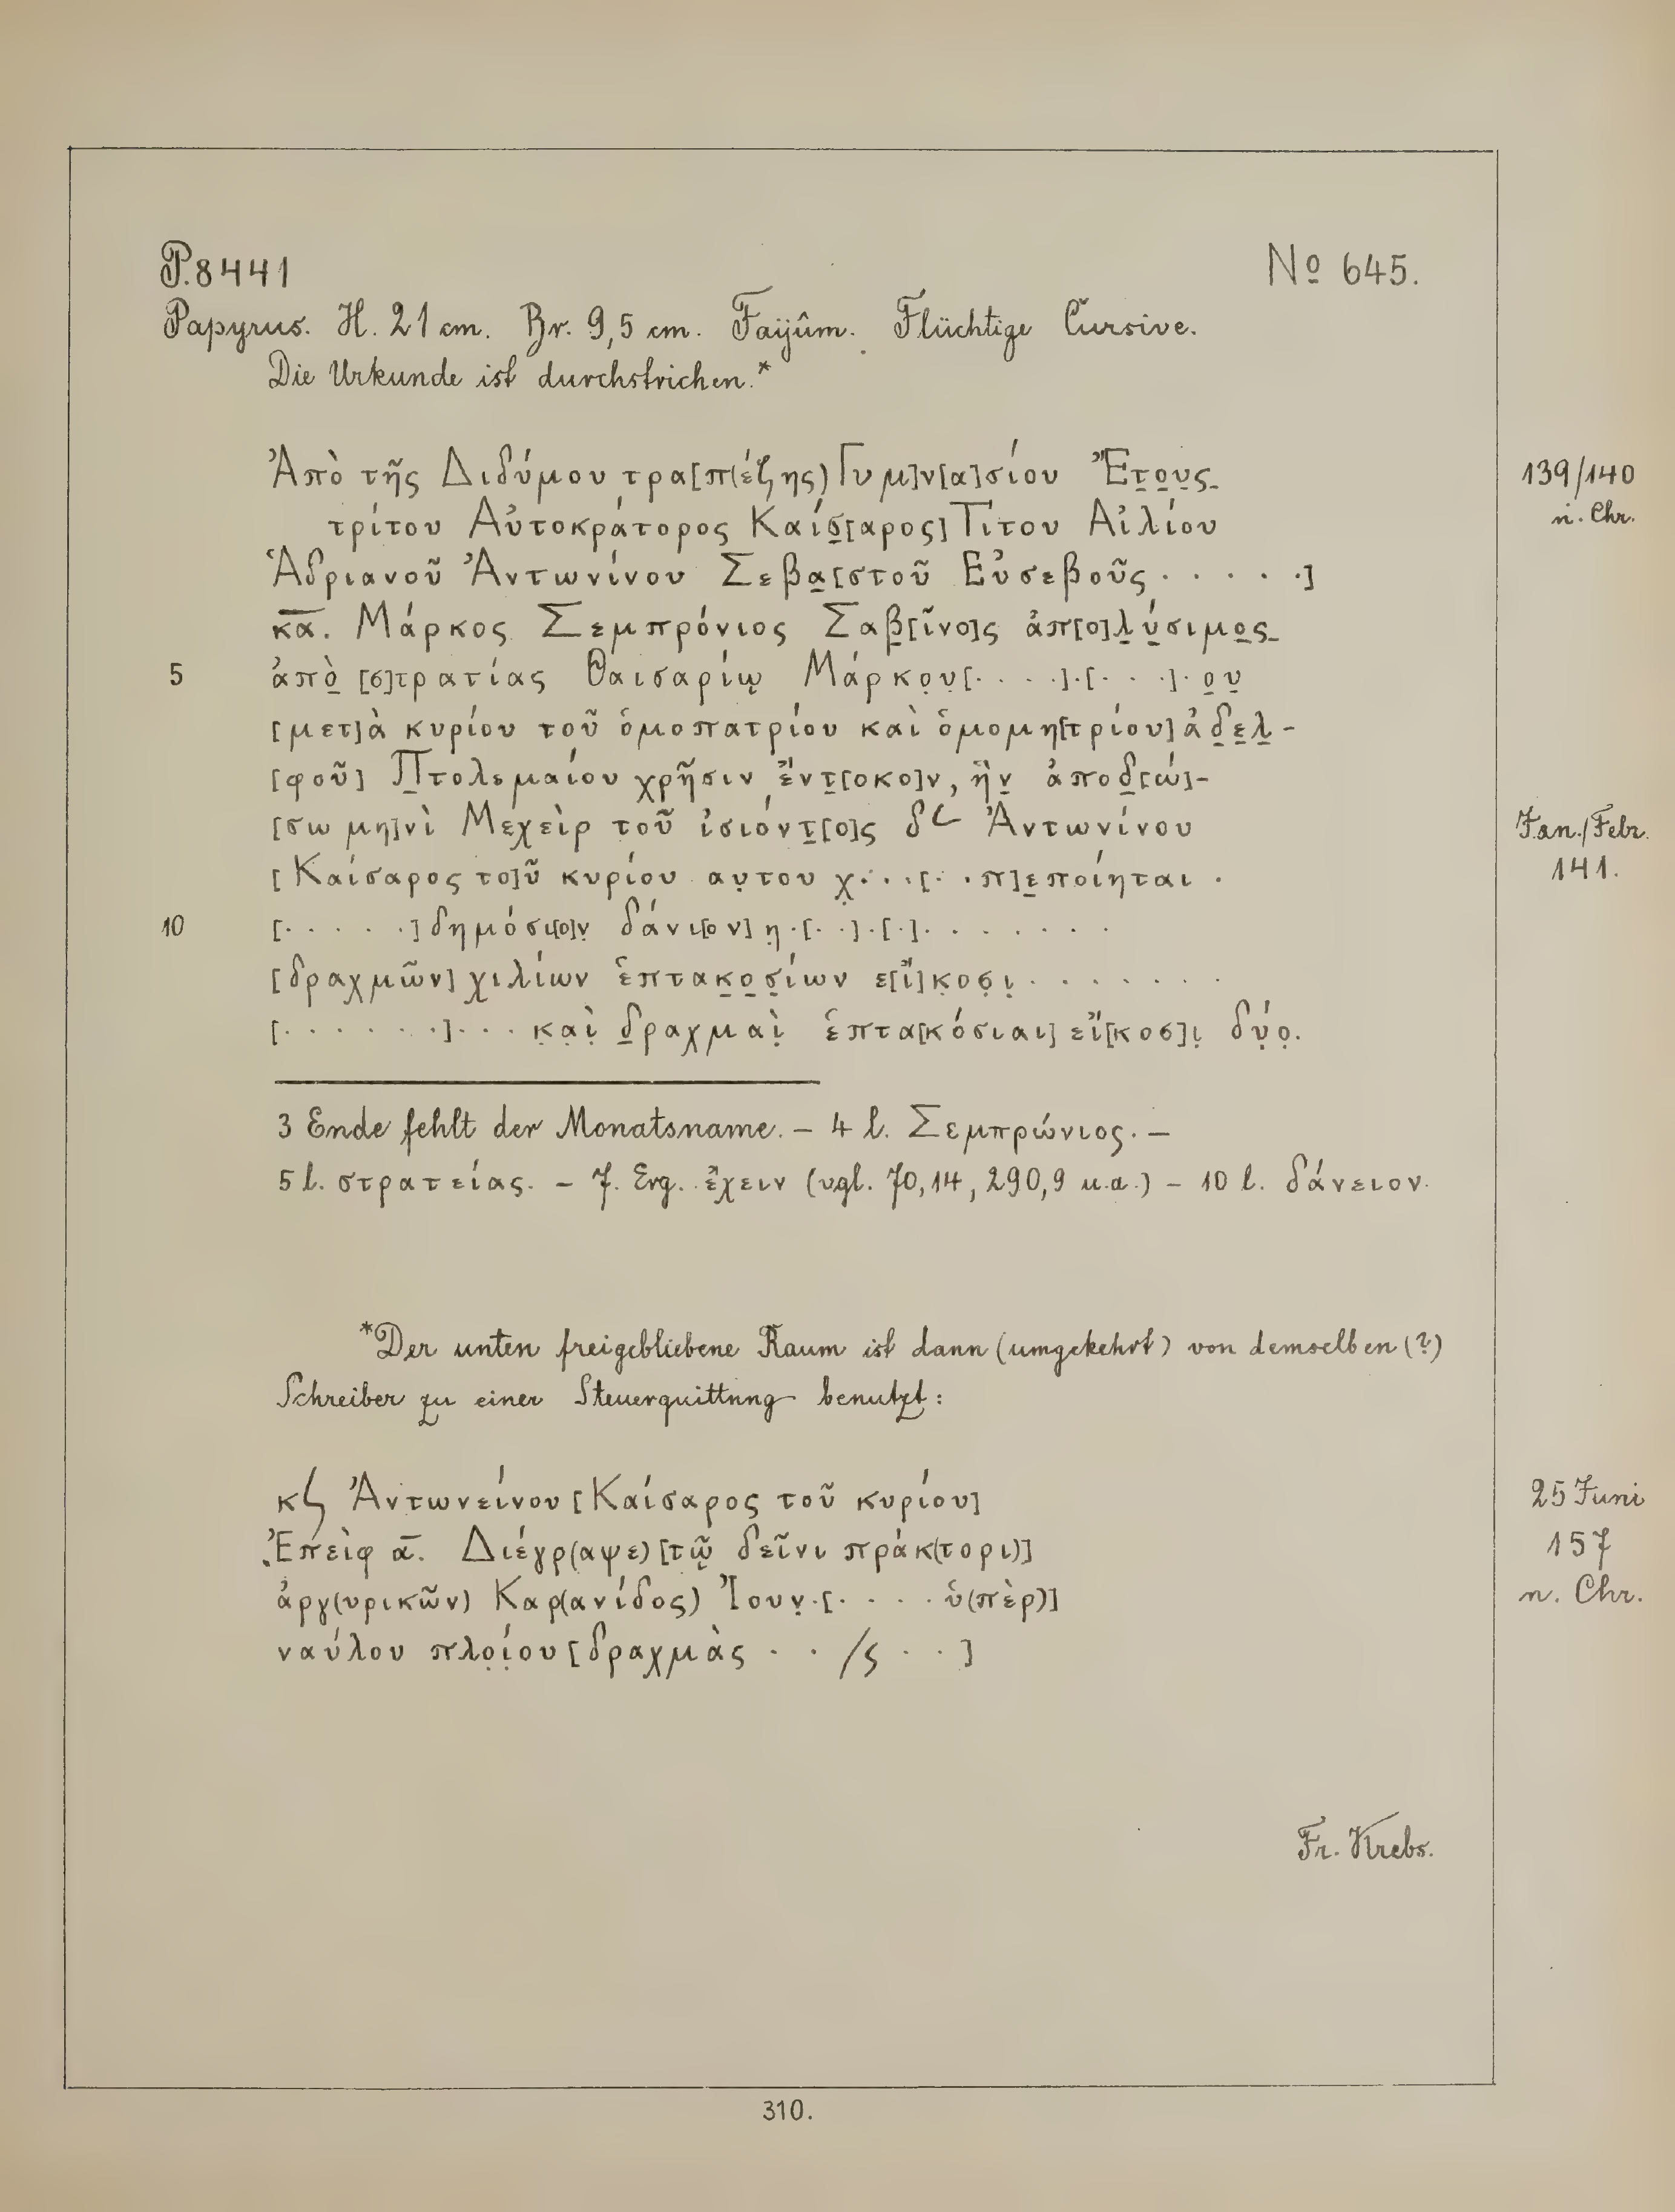 P. 8441
No 645.
Papyrus. H. 21 cm. Br. 9,5 cm. Faijûm. Flüchtige Cursive.
Die Urkunde ist durchstrichen.*
Ἀπὸ τῆς Διδύμου τρα[π(έζης) Γυμ]ν[α]σίου Ἔτο̣υ̣ς̣
139/140
n. Chr.
τρίτου Αὐτοκράτορος Καίσ̣[αρος] Τίτου Αἰλίου
Ἁδριανοῦ Ἀντωνίνου Σεβα̣[στοῦ Εὐσεβοῦς · · · · ·]
κ̅α̅. Μάρκος Σεμπρόνιος Σαβ̣[ῖνο]ς ἀπ[ο]λ̣ύ̣σιμο̣ς̣
5 ἀπὸ̣ [σ]τρατίας Θαισαρίῳ Μάρκο̣υ̣[· · · ·]·[· · ·]· ο̣υ̣
[μετ]ὰ κυρίου τοῦ ὁμοπατρίου καὶ ὁμομη[τρίου] ἀδ̣ε̣λ̣-
[φοῦ] Π̣τολεμαίου χρῆσιν ἔντ̣[οκο]ν, ἣν̣ ἀποδ̣[ώ]-
[σω μη]νὶ Μεχεὶρ τοῦ ἰσιόντ̣[ο]ς δ𐅹 Ἀντωνίνου
Jan./Febr.
141.
[Καίσαρος το]ῦ κυρίου αυ̣του χ̣· · ·[· ·π]ε̣ποίηται ·
10 [· · · · · ·] δημόσι[ο]ν̣ δάνι[ον] η̣·[· ·]·[·]· · · · · · ·
[δραχμῶν] χιλίων ἑπτακ̣ο̣σ̣ίων ε[ἴ]κ̣ο̣σ̣ι̣ · · · · · · ·
[· · · · · · ·]· · · κ̣α̣ὶ̣ δ̣ραχμαὶ̣ ἑπτα[κόσιαι] εἴ[κοσ]ι̣ δύ̣ο̣.
3 Ende fehlt der Monatsname. – 4 l. Σεμπρώνιος. –
5 l. στρατείας. – 7. Erg. ἔχειν (vgl. 70,14, 290,9 u.a.) – 10 l. δάνειον.
*Der unten freigebliebene Raum ist dann (umgekehrt) von demselben (?)
Schreiber zu einer Steuerquittung benutzt:
κϛ Ἀντωνείνου [Καίσαρος τοῦ κυρίου]
25 Juni
157
n. Chr.
Ἐπεὶφ α̅. Διέγρ(αψε) [τῷ δεῖνι πράκ(τορι)]
ἀργ(υρικῶν) Καρ(ανίδος) Ἰουν̣·[· · · · ὑ(πὲρ)]
ναύλου πλο̣ί̣ου [δραχμὰς · · /ς · · ]
Fr. Krebs.
310.